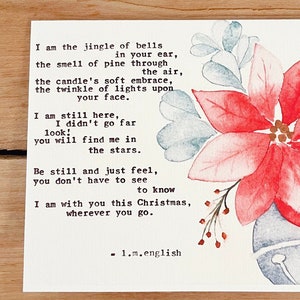 I am the jingle of bells
in your ear,
the smell of pine through
the air,
the candle's soft embrace,
the twinkle of lights upon
your face.
I am still here,
I didn't go far
look!
you will find me in
the stars.
Be still and just feel,
you don't have to see
to know
I am with you this Christmas,
wherever you go.
- l.m.english